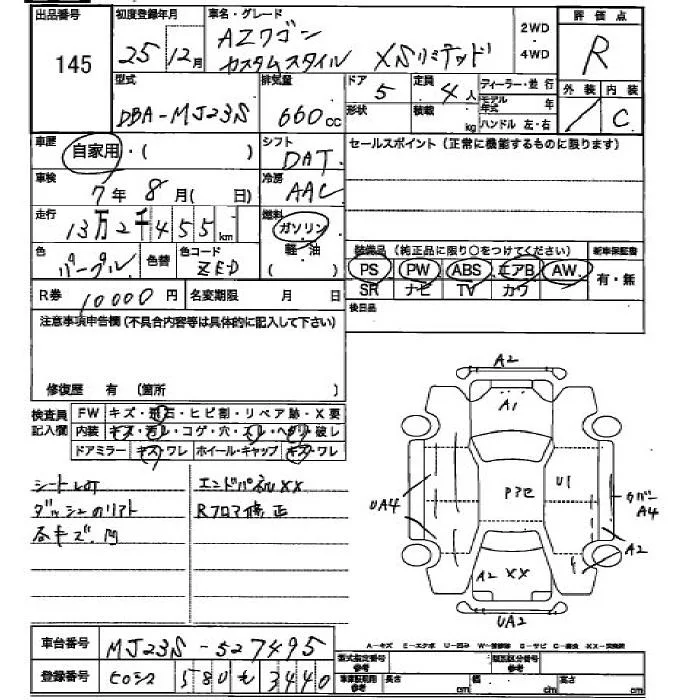 出品番号
145
初度登録年月
25 12月
車名・グレード
AZワゴン
カスタムスタイル XSリミテッド
2WD
・
4WD
評価点
R
外装 内装
C
型式
DBA-MJ23S
排気量
660cc
ドア
5
定員
4人
形状
積載
kg
ディーラー・並行
モデル年式 年
ハンドル 左・右
車歴
自家用・( )
シフト
DAT
セールスポイント(正常に機能するものに限ります)
車検
7年8月( 日)
冷房
AAC
走行
13万2千455km
燃料
ガソリン
軽・油
( )
色
パープル
色替
色コード
ZED
装備品(純正品に限り○をつけてください)
新車保証書
PS PW ABS エアB AW
SR ナビ TV カワ
有・無
R券 10000円
名変期限 月 日
後日品
注意事項申告欄(不具合内容等は具体的に記入して下さい)
修復歴 有 (箇所 )
検査員記入欄
FW キズ・飛石・ヒビ割・リペア跡・X要
内装 キズ・汚レ・コゲ・穴・スレ・ヘタリ・破レ
ドアミラー キズ・ワレ ホイール・キャップ キズ・ワレ
エンドパネルXX
Rフロア修正
A2
A1
UA4
Pスモ
U1
カバーA4
A2
A2 XX
UA2
車台番号 MJ23S-527495
登録番号 ヒロシマ 580 も 3440
型式指定番号
参考
類別区分番号
参考
車庫証明用
参考
長さ cm
幅 cm
高さ cm